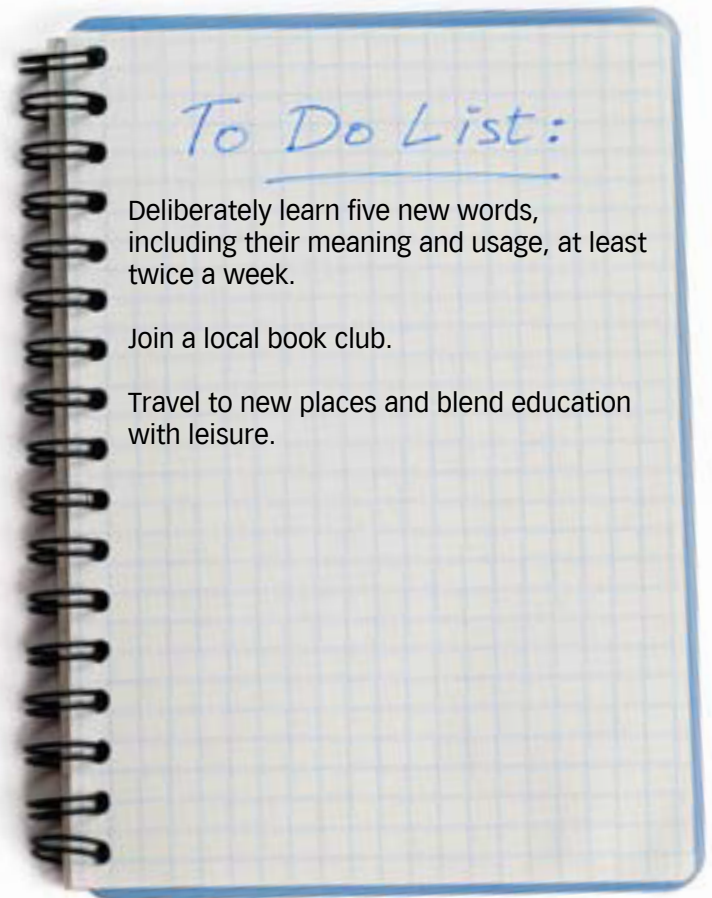 To Do List:
Deliberately learn five new words,
including their meaning and usage, at least
twice a week.
Join a local book club.
Travel to new places and blend education
with leisure.